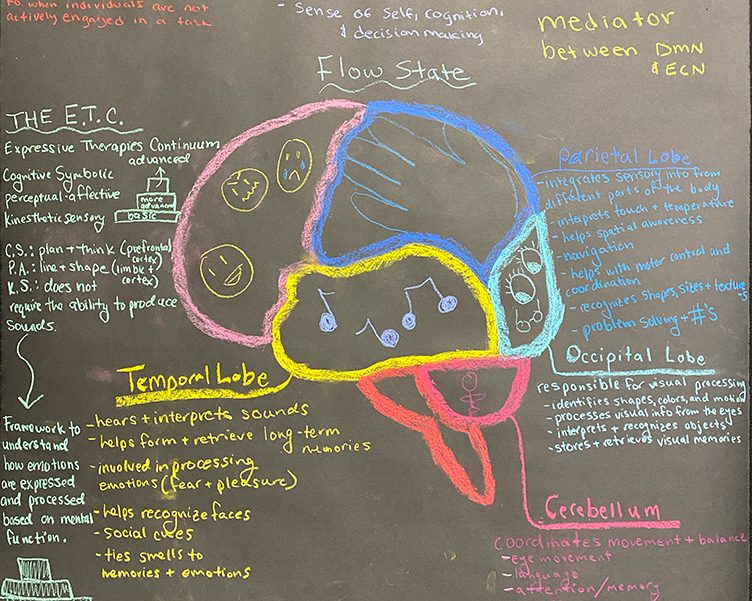 to when individuals are not
actively engaged in a task
- Sense of self, cognition,
& decision making
mediator
between DMN
& ECN
Flow State
THE E.T.C.
Expressive Therapies Continuum
Cognitive Symbolic
perceptual-affective
kinesthetic sensory
advanced
more advanced
basic
C.S.: plan + think (prefrontal cortex)
P.A.: line + shape (limbic + cortex)
K.S.: does not
require the ability to produce
sounds.
Framework to
understand
how emotions
are expressed
and processed
based on mental
function.
Parietal Lobe
- integrates sensory info from
different parts of the body
- interprets touch + temperature
- helps spatial awareness
- navigation
- helps with motor control and
coordination
- recognizes shapes, sizes + textures
- problem solving + #'s
Occipital Lobe
responsible for visual processing
- identifies shapes, colors, and motion
- processes visual info from the eyes
- interprets + recognizes objects
- stores + retrieves visual memories
Temporal Lobe
- hears + interprets sounds
- helps form + retrieve long-term
memories
- involved in processing
emotions (fear + pleasure)
- helps recognize faces
- social cues
- ties smells to
memories + emotions
Cerebellum
coordinates movement + balance
- eye movement
- language
- attention/memory